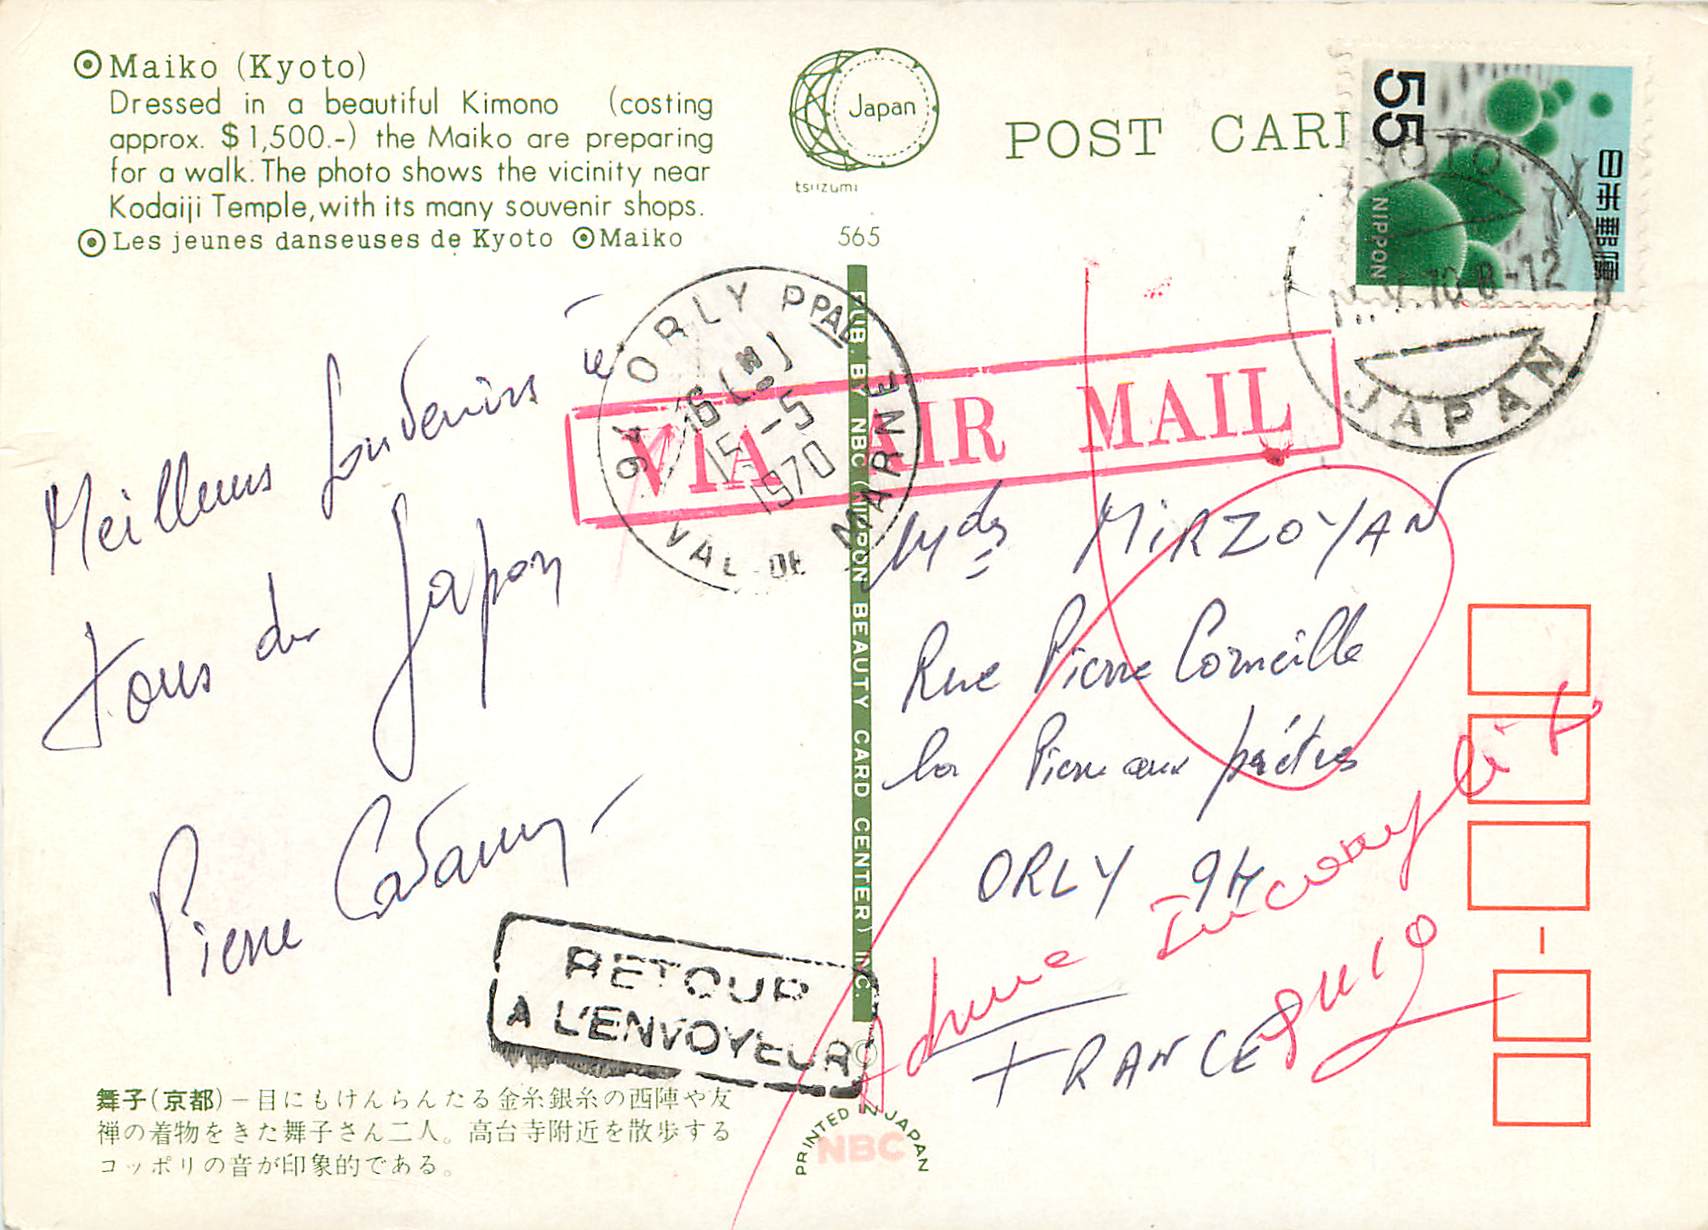 Maiko (Kyoto)
Dressed in a beautiful Kimono (costing
approx. $1,500.-) the Maiko are preparing
for a walk. The photo shows the vicinity near
Kodaiji Temple, with its many souvenir shops.
Les jeunes danseuses de Kyoto Maiko
Japan
tsuzumi
565
POST CAR
55
NIPPON
日本郵便
KYOTO
V.70 8-12
JAPAN
94 ORLY PPAL
16
15-5
1970
VAL-DE MARNE
VIA AIR MAIL
Meilleurs souvenirs à
tous du Japon
Pierre
MIRZOYAN
Rue Pierre Corneille
la Pierre aux prêtres
ORLY 94
FRANCE
RETOUR
A L'ENVOYEUR
PUB. BY NBC (NIPPON BEAUTY CARD CENTER) INC.
舞子(京都)－目にもけんらんたる金糸銀糸の西陣や友
禅の着物をきた舞子さん二人。高台寺附近を散歩する
コッポリの音が印象的である。
PRINTED IN JAPAN
NBC